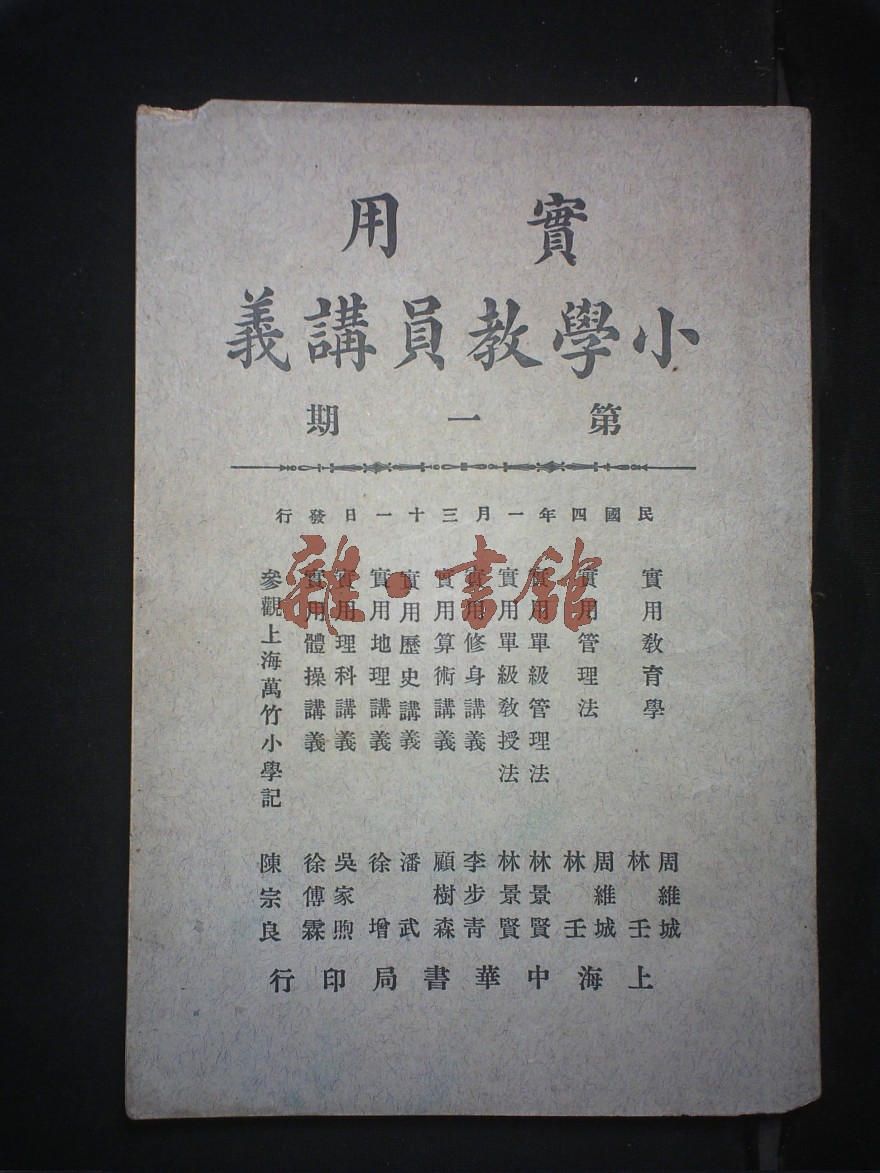 實用
小學教員講義
第一期
民國四年一月三十一日發行
實用教育學 周維城 林壬
實用管理法 周維城 林壬
實用單級管理法 林景賢
實用單級教授法 林景賢
實用修身講義 李步青
實用算術講義 顧樹森
實用歷史講義 潘武
實用地理講義 徐增
實用理科講義 吳家煦
實用體操講義 徐傅霖
參觀上海萬竹小學記 陳宗良
上海中華書局印行
雜·書館